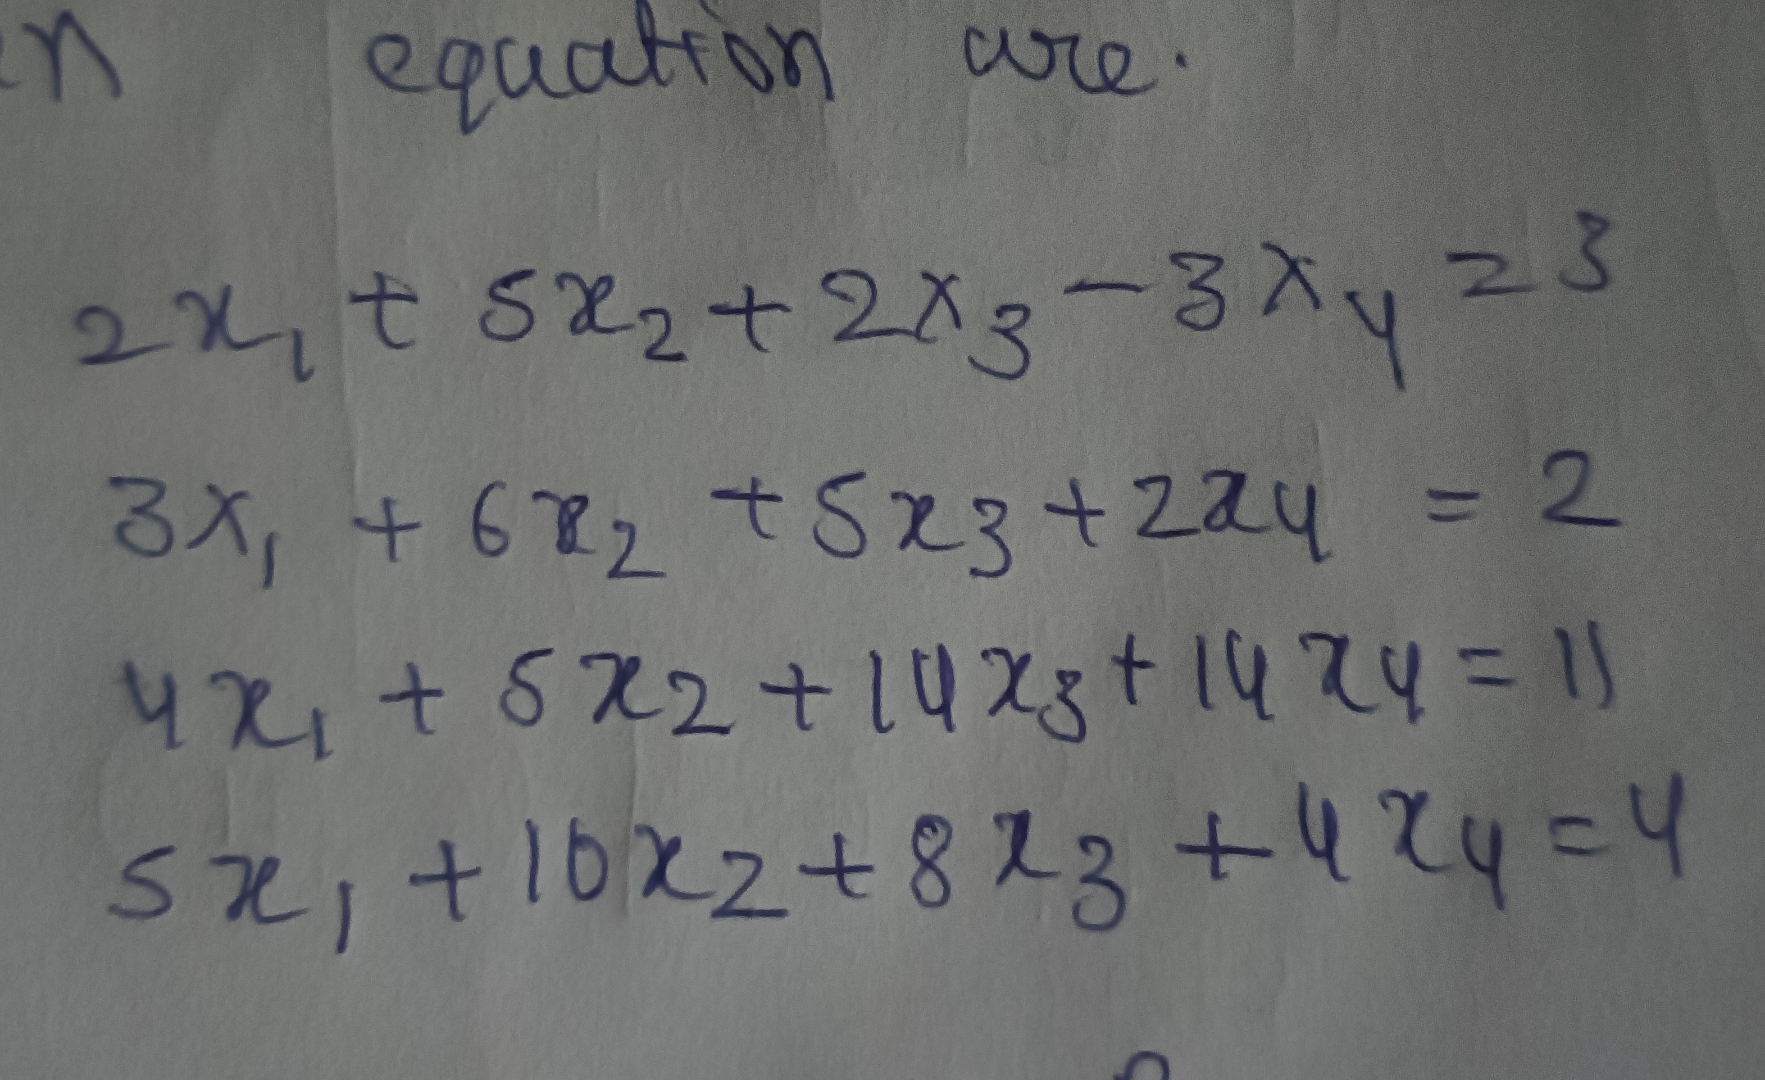 equation are.
2x₁ + 5x₂ + 2x₃ - 3x₄ = 3
3x₁ + 6x₂ + 5x₃ + 2x₄ = 2
4x₁ + 5x₂ + 14x₃ + 14x₄ = 11
5x₁ + 10x₂ + 8x₃ + 4x₄ = 4